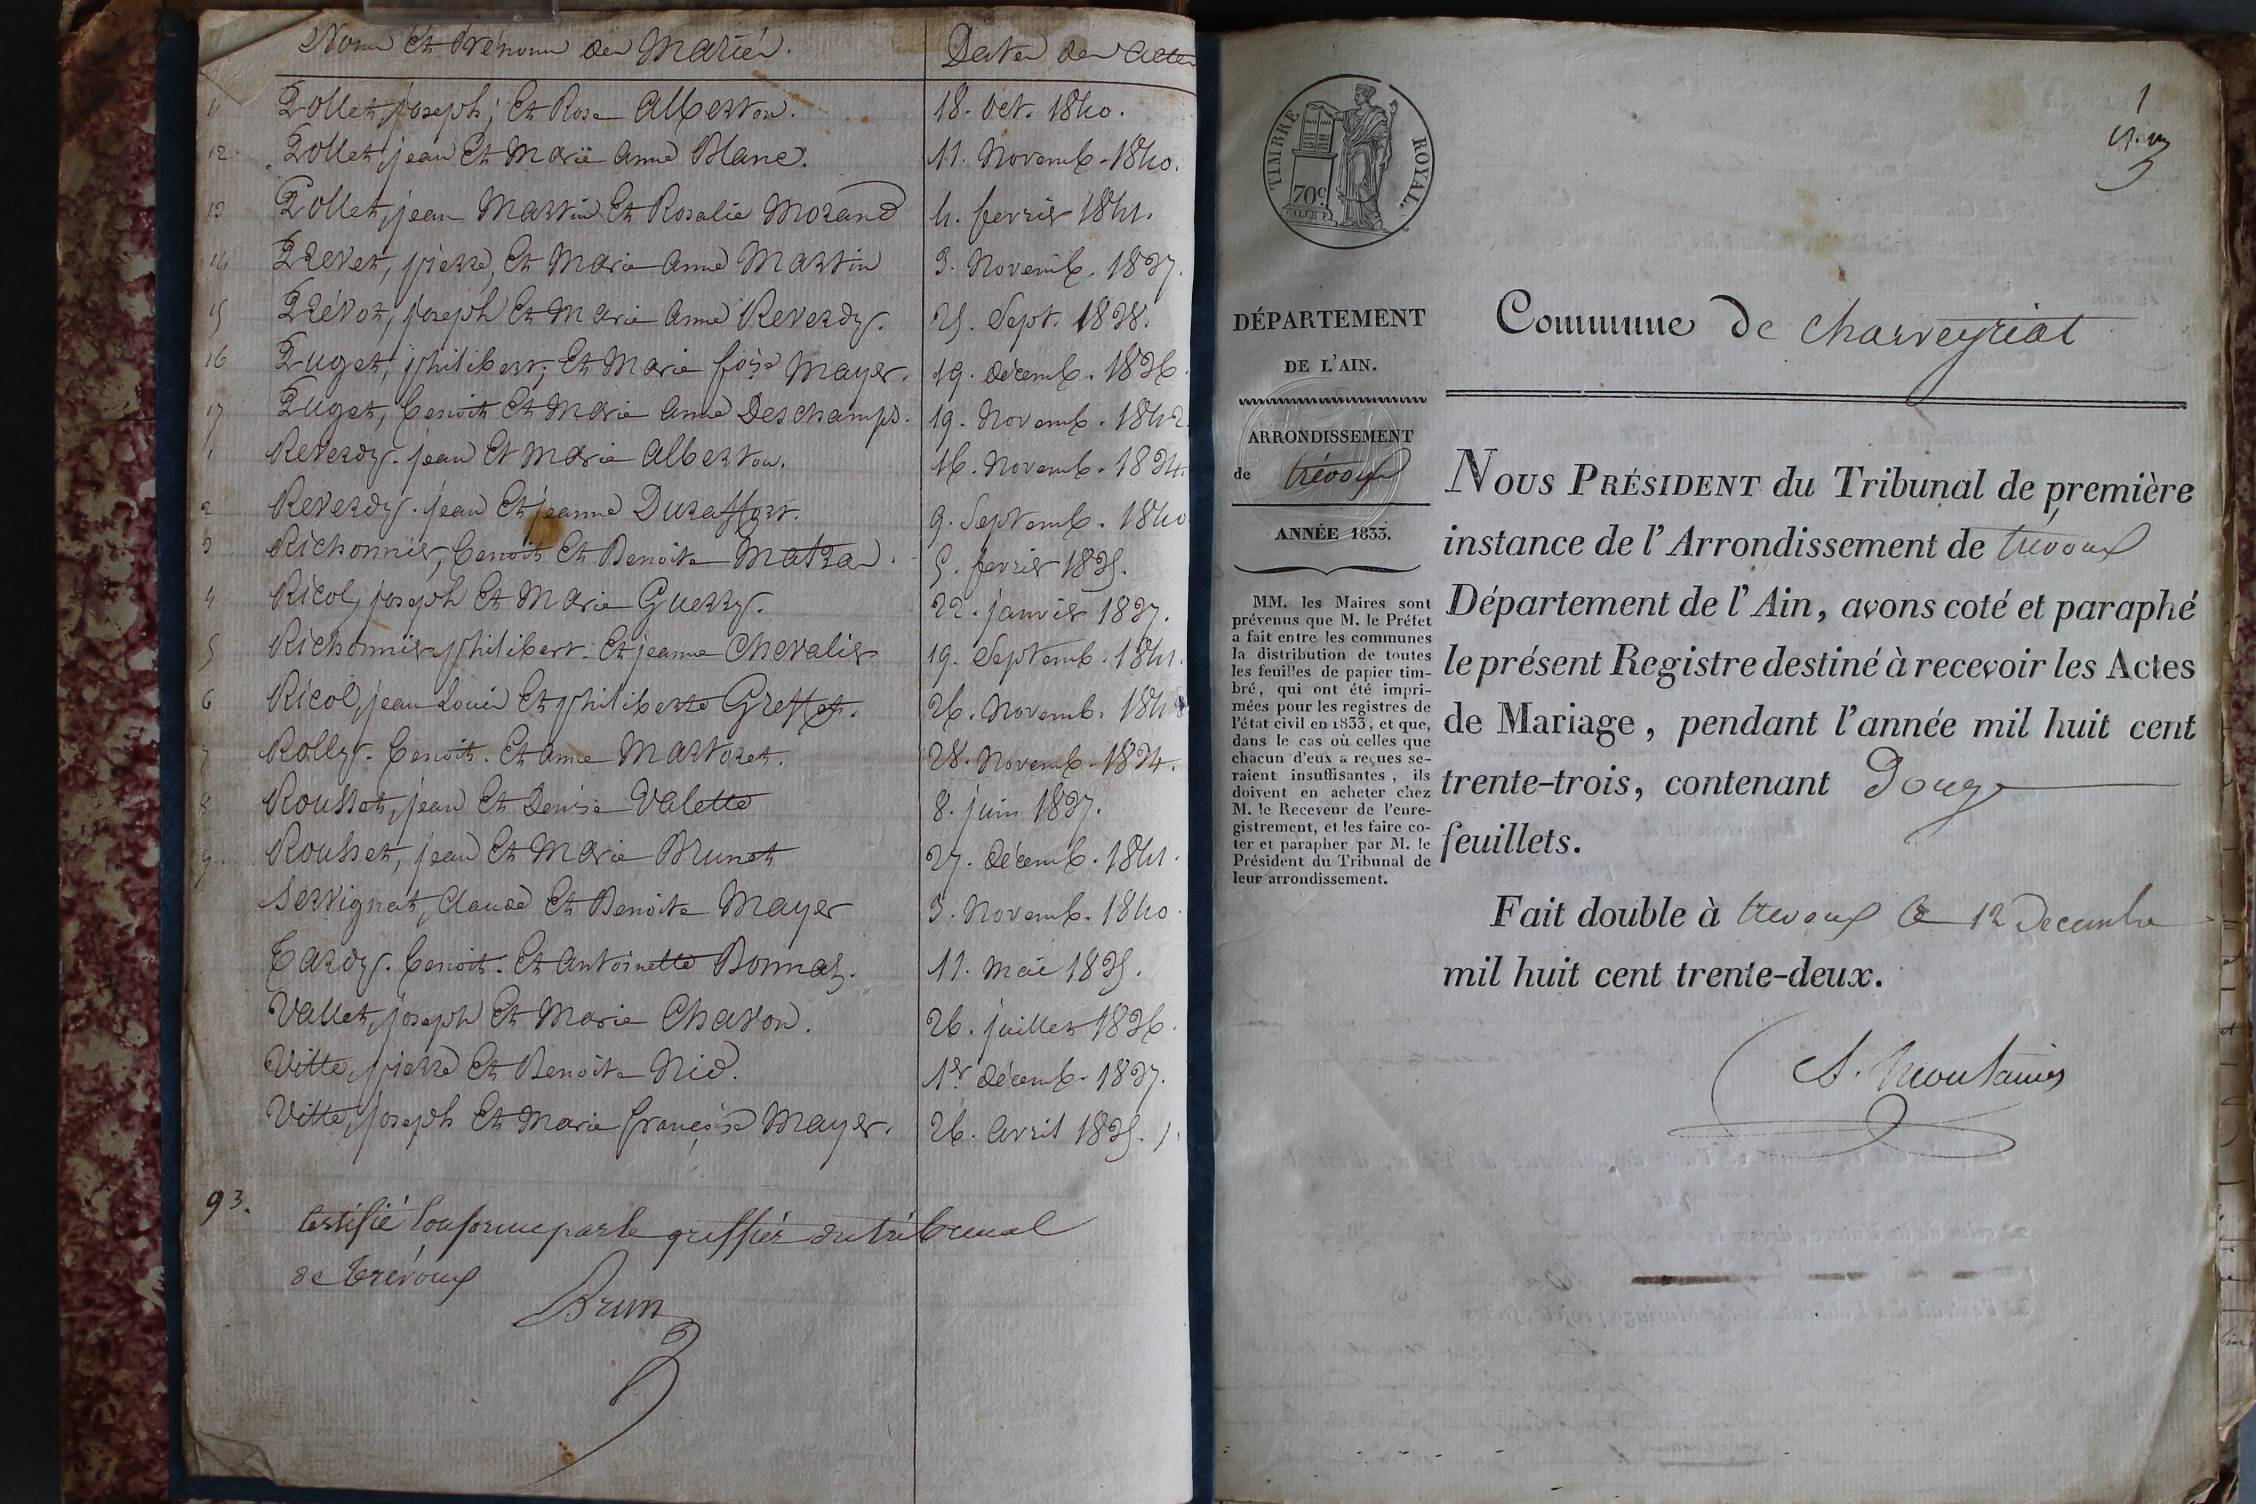 Noms et Prénoms des Mariés. Dates des Actes
11 Pollet, joseph; Et Rose Alberton. 18. Oct. 1840.
12 Pollet, jean Et Marie Anne Blanc. 11. Novemb. 1840.
13 Pollet, jean Martin Et Rosalie Morand 4. fevrier 1841.
14 Prevet, pierre, Et Marie Anne Martin 3. Novemb. 1837.
15 Prévot, joseph Et Marie Anne Reverdy. 25. Sept. 1838.
16 Puget, philibert; Et Marie fçoise Mayer. 19. décemb. 1836.
17 Puget, benoit Et Marie Anne Deschamps. 19. Novemb. 1842.
1 Reverdy. jean Et Marie Alberton. 16. Novemb. 1834.
2 Reverdy. jean Et jeanne Duraffort. 9. Septemb. 1840
3 Richonnier, benoit Et Benoite Matra. 5. fevrier 1835.
4 Ricol, joseph Et Marie Guerry. 22. janvier 1837.
5 Richonnier philibert. Et jeanne Chevalier 19. Septemb. 1841.
6 Ricol, jean Louis Et philiberte Greffet. 26. Novemb.
7 Rolly. benoit. Et anne Martoret. 28. Novemb. 1834.
8 Rousset, jean Et Denise Valette 8. juin 1837.
9. Rousset, jean Et Marie Brunet 27. décemb. 1841.
Servignat, Claude Et Benoite Mayer 3. Novemb. 1840.
Tardy. benoit. Et Antoinette Bonnas. 11. Mai 1835.
Vallet, joseph Et Marie Chavon. 26. juillet 1836.
Vitte, pierre Et Benoite Nid. 1er décemb. 1837.
Vitte, joseph Et Marie françoise Mayer. 26. Avril 1835.
93.
Certifié Conforme par le greffier du tribunal
de Trévoux
Brun
1
TIMBRE ROYAL.
70c
DÉPARTEMENT
DE L'AIN.
ARRONDISSEMENT
de trévoux
ANNÉE 1833.
MM. les Maires sont
prévenus que M. le Préfet
a fait entre les communes
la distribution de toutes
les feuilles de papier tim-
bré, qui ont été impri-
mées pour les registres de
l'état civil en 1833, et que,
dans le cas où celles que
chacun d'eux a reçues se-
raient insuffisantes, ils
doivent en acheter chez
M. le Receveur de l'enre-
gistrement, et les faire co-
ter et parapher par M. le
Président du Tribunal de
leur arrondissement.
Commune de Charveyriat
NOUS PRÉSIDENT du Tribunal de première
instance de l'Arrondissement de trévoux
Département de l'Ain, avons coté et paraphé
le présent Registre destiné à recevoir les Actes
de Mariage, pendant l'année mil huit cent
trente-trois, contenant Douze
feuillets.
Fait double à trevoux le 12 Decembre
mil huit cent trente-deux.